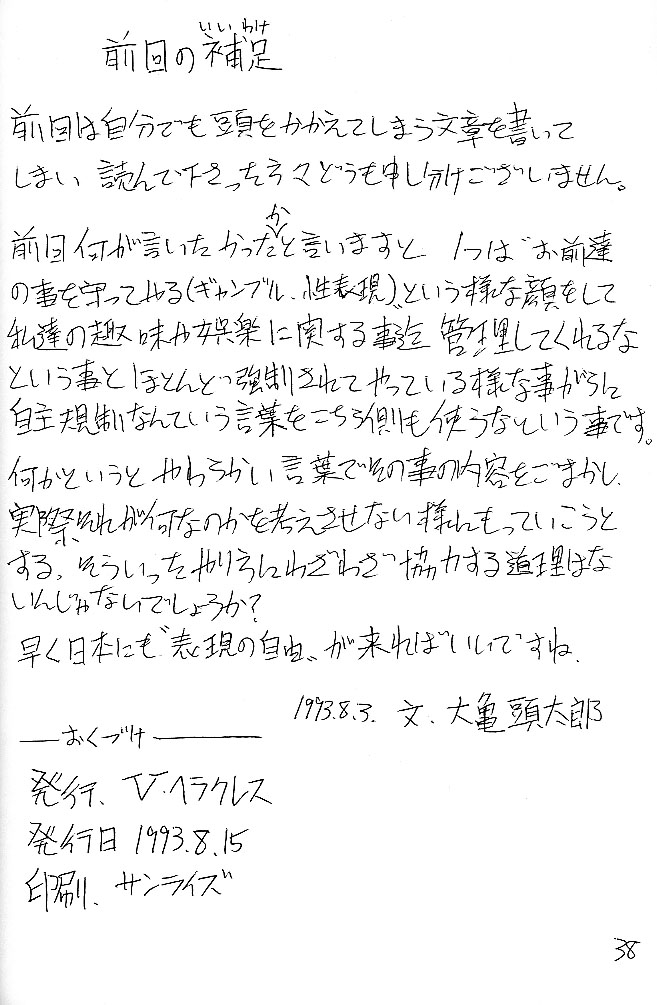 いいわけ
前回の補足
前回は自分でも頭をかかえてしまう文章を書いて
しまい 読んで下さった方々どうも申し分けございません。
か
前回何が言いたかったと言いますと 1つは〝お前達
の事を守ってやる(ギャンブル、性表現)〟という様な顔をして
私達の趣味や娯楽に関する事迄 管理してくれるな
という事と ほとんど強制されてやっている様な事がらに
自主規制なんていう言葉をこちら側も使うなという事です。
何かというと やわらかい言葉でその事の内容をごまかし、
実際それが何なのかを考えさせない様にもっていこうと
する、そういったやり方にわざわざ協力する道理はな
いんじゃないでしょうか?
早く日本にも〝表現の自由〟が来ればいいですね、
1993.8.3. 文、大亀頭太郎
—おくづけ—
発行、V・ヘラクレス
発行日 1993.8.15
印刷、サンライズ
38